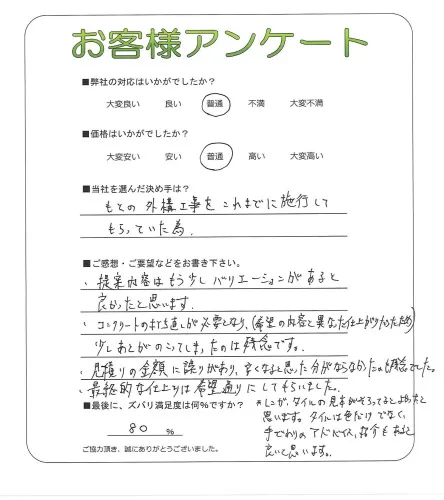 お客様アンケート
■弊社の対応はいかがでしたか?
大変良い 良い 普通 不満 大変不満
■価格はいかがでしたか?
大変安い 安い 普通 高い 大変高い
■当社を選んだ決め手は?
もとの 外構工事を これまでに施行して
もらっていた為.
■ご感想・ご要望などをお書き下さい。
・提案内容はもう少しバリエーションがあると
良かったと思います.
・コンクリートの打ち直しが必要となり、(希望の内容と異なった仕上がりだったため)
少しあとがのこってしまったのは残念です。
・見積りの金額に誤りがあり、安くなると思った分がならなかったのも残念でした。
・最終的な仕上りは希望通りにしてもらいました。
■最後に、ズバリ満足度は何%ですか?
80 %
ご協力頂き、誠にありがとうございました。
タイルの見本がそろってるとよかったと
思います。タイルは色だけでなく、
手ざわりのアドバイス、紹介もあると
良いと思います。